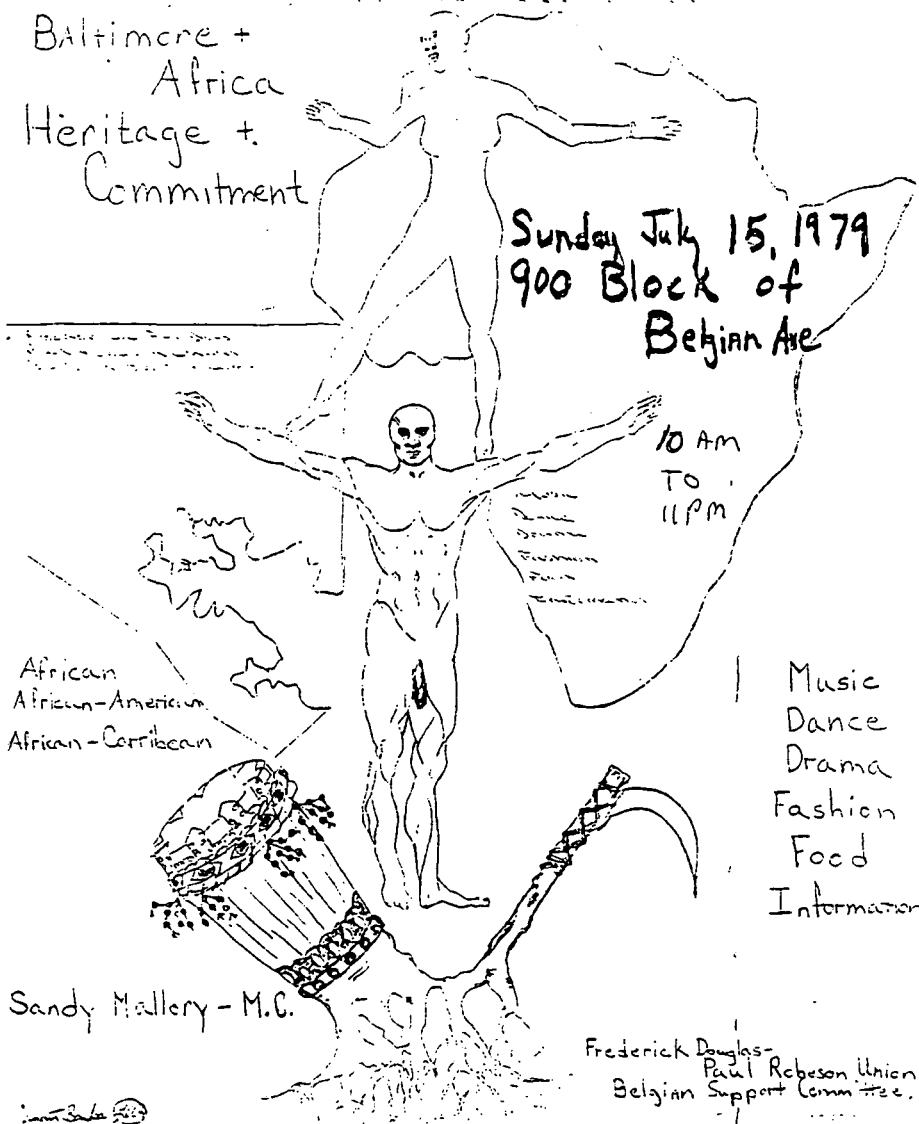 Baltimore +
Africa
Heritage +
Commitment
Sunday July 15, 1979
900 Block of
Belgian Ave
10 AM
TO
11 PM
African
African-American
African-Carribean
Music
Dance
Drama
Fashion
Food
Information
Sandy Mallory - M.C.
Frederick Douglas-
Paul Robeson Union
Belgian Support Committee.